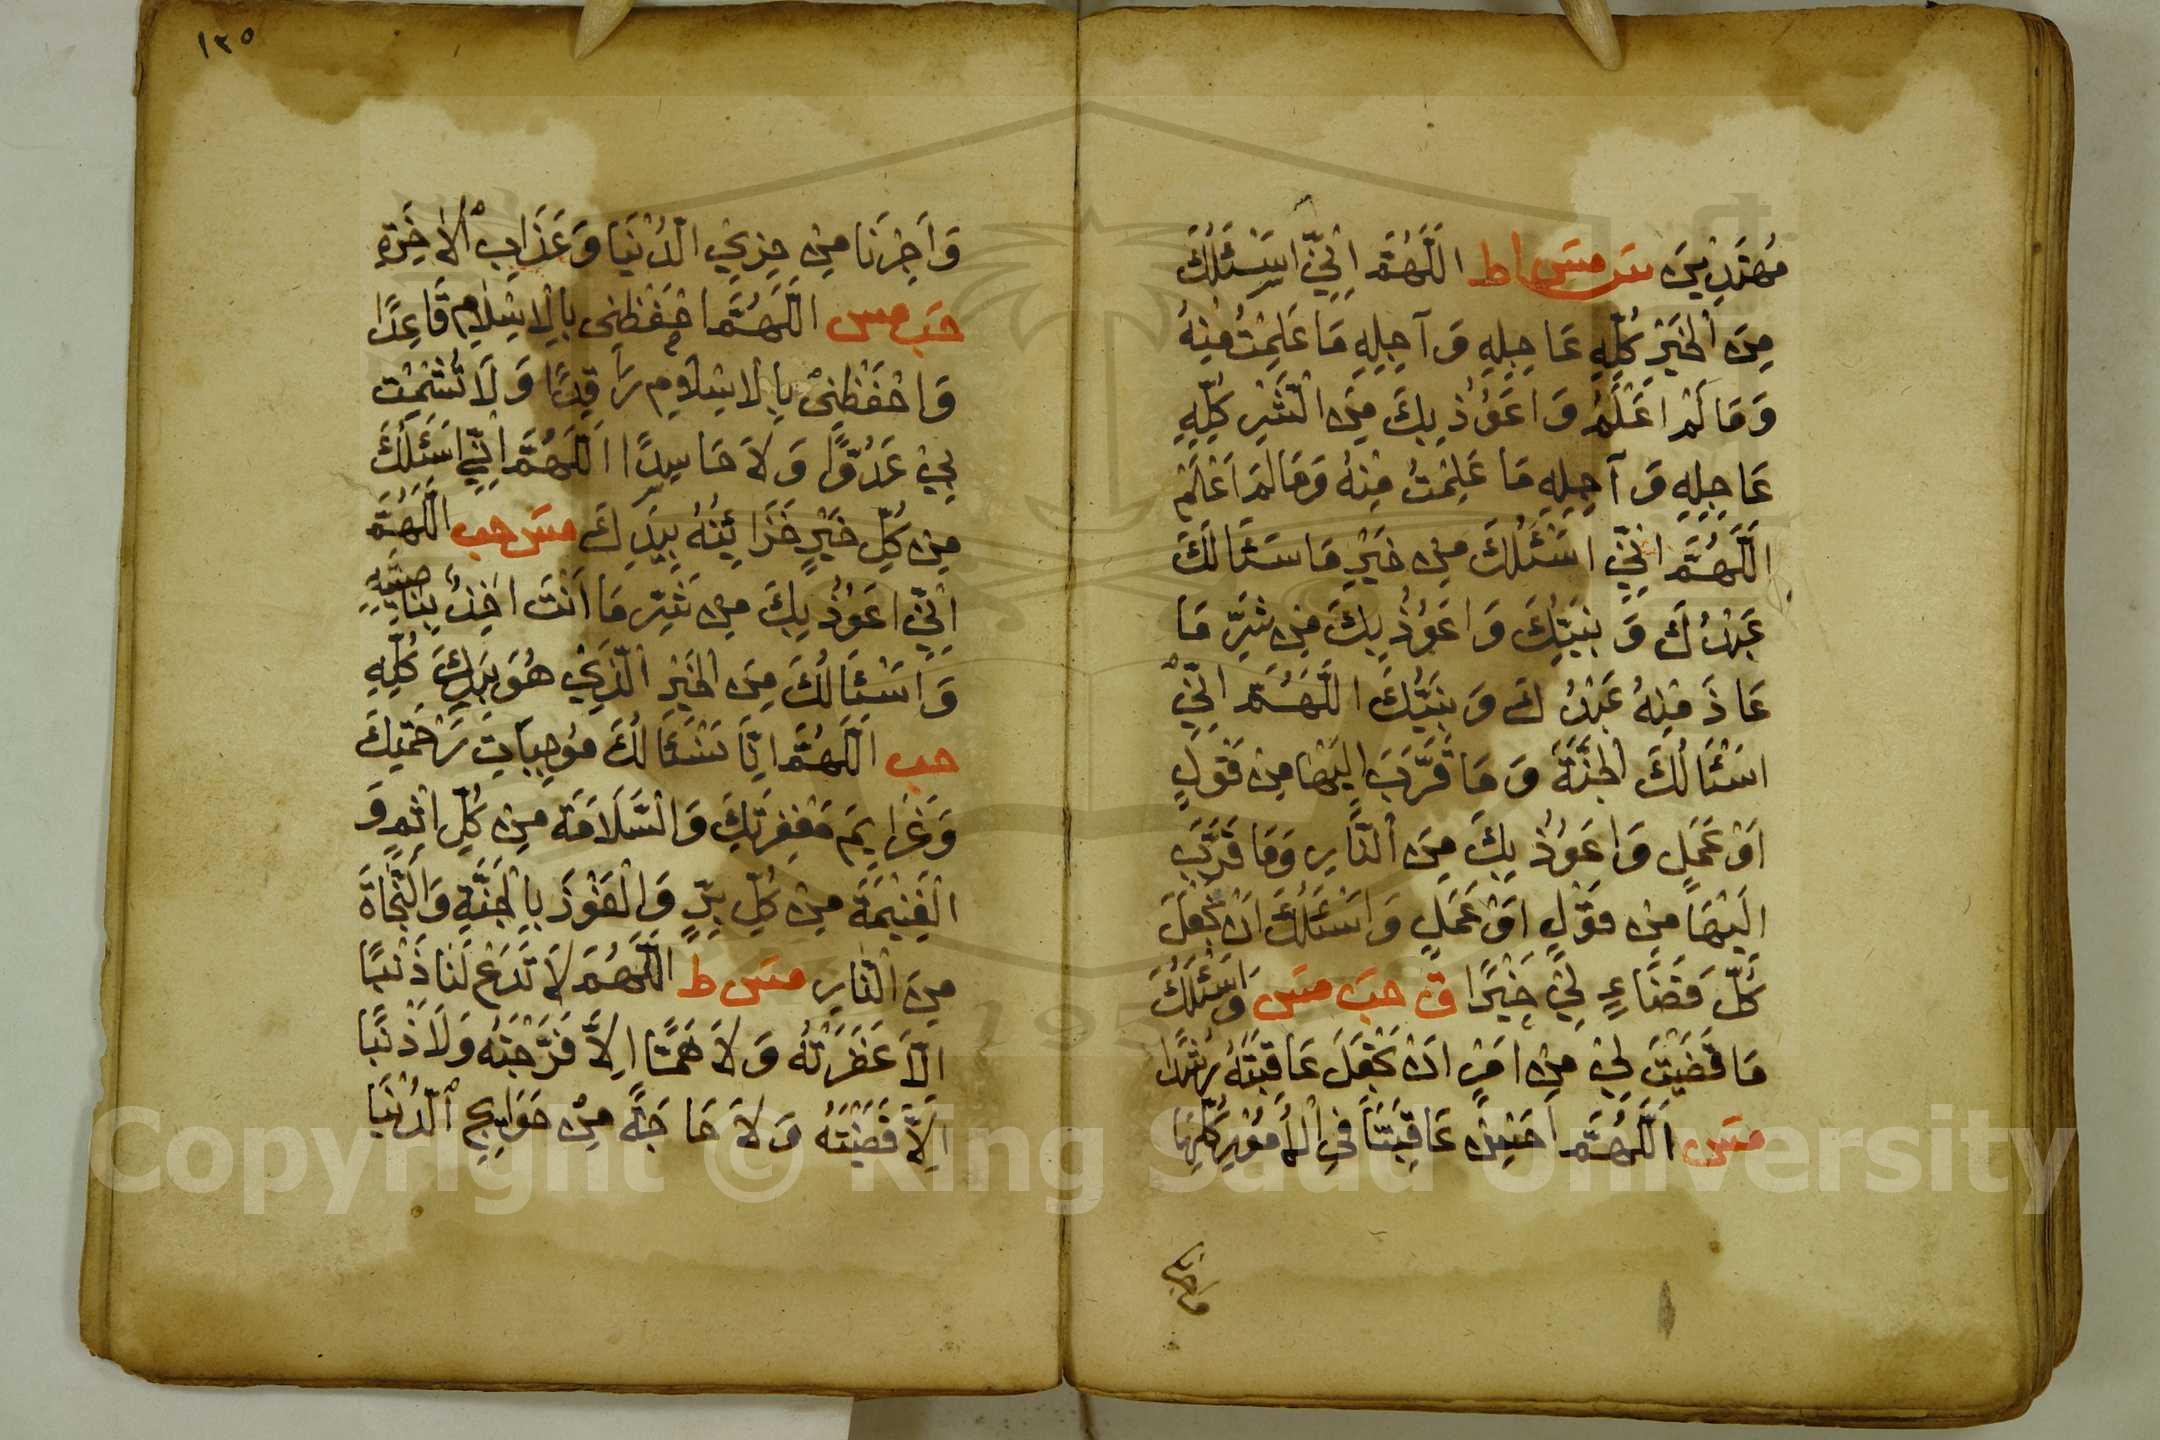 مُهْتَدِيْنَ سَ مَسَ ا ط اَللّٰهُمَّ اِنِّيْ اَسْئَلُكَ
مِنَ الْخَيْرِ كُلِّهِ عَاجِلِهِ وَ آجِلِهِ مَا عَلِمْتُ مِنْهُ
وَ مَا لَمْ اَعْلَمْ وَ اَعُوْذُ بِكَ مِنَ الشَّرِّ كُلِّهِ
عَاجِلِهِ وَ آجِلِهِ مَا عَلِمْتُ مِنْهُ وَ مَا لَمْ اَعْلَمْ
اَللّٰهُمَّ اِنِّيْ اَسْئَلُكَ مِنْ خَيْرِ مَا سَئَالَكَ
عَبْدُكَ وَ نَبِيُّكَ وَ اَعُوْذُ بِكَ مِنْ شَرِّ مَا
عَاذَ مِنْهُ عَبْدُكَ وَ نَبِيُّكَ اَللّٰهُمَّ اِنِّيْ
اَسْئَالُكَ الْجَنَّةَ وَ مَا قَرَّبَ اِلَيْهَا مِنْ قَوْلٍ
اَوْ عَمَلٍ وَ اَعُوْذُ بِكَ مِنَ النَّارِ وَ مَا قَرَّبَ
اِلَيْهَا مِنْ قَوْلٍ اَوْ عَمَلٍ وَ اَسْئَلُكَ اَنْ تَجْعَلَ
كُلَّ قَضَاءٍ لِيْ خَيْرًا ق حب مَسَ وَ اَسْئَلُكَ
مَا قَضَيْتَ لِيْ مِنْ اَمْرٍ اَنْ تَجْعَلَ عَاقِبَتَهُ رُشْدًا
مَسَ اَللّٰهُمَّ اَحْسِنْ عَاقِبَتَنَا فِي الْاُمُوْرِ كُلِّهَا
١٣٥
وَ اَجِرْنَا مِنْ خِزْيِ الدُّنْيَا وَ عَذَابِ الْاٰخِرَةِ
حَب مس اَللّٰهُمَّ احْفَظْنِى بِالْاِسْلَامِ قَاعِدًا
وَ احْفَظْنِيْ بِالْاِسْلَامِ رَاقِدًا وَ لَا تُشْمِتْ
بِيْ عَدُوًّا وَ لَا حَاسِدًا اَللّٰهُمَّ اِنِّيْ اَسْئَلُكَ
مِنْ كُلِّ خَيْرٍ خَزَائِنُهُ بِيَدِكَ مَسَ حب اَللّٰهُمَّ
اِنِّيْ اَعُوْذُ بِكَ مِنْ شَرِّ مَا اَنْتَ اٰخِذٌ بِنَاصِيَتِهِ
وَ اَسْئَالُكَ مِنَ الْخَيْرِ الَّذِيْ هُوَ بِيَدِكَ كُلِّهِ
حب اَللّٰهُمَّ اِنَّا نَسْئَالُكَ مُوْجِبَاتِ رَحْمَتِكَ
وَ عَزَايِمَ مَغْفِرَتِكَ وَ السَّلَامَةَ مِنْ كُلِّ اِثْمٍ وَ
الْغَنِيْمَةَ مِنْ كُلِّ بِرٍّ وَ الْفَوْزَ بِالْجَنَّةِ وَ النَّجَاةَ
مِنَ النَّارِ مَسَ ط اَللّٰهُمَّ لَا تَدَعْ لَنَا ذَنْبًا
اِلَّا غَفَرْتَهُ وَ لَا هَمًّا اِلَّا فَرَّجْتَهُ وَ لَا ذَنْبًا
اِلَّا قَضَيْتَهُ وَ لَا حَاجَةً مِنْ حَوَايِجِ الدُّنْيَا
Copyright © King Saud University